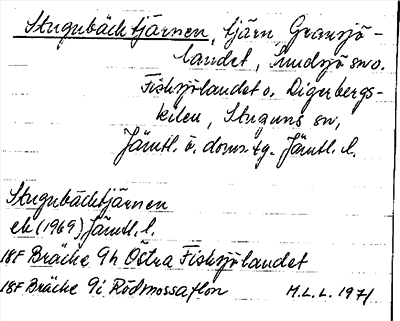 Stugubäcktjärnen, tjärn Gransjö-
landet, Sundsjö sn o.
Fisksjölandet o. Digerbergs-
kilen, Stuguns sn,
Jämtl. ö. doms.tg. Jämtl. l.
Stugubäcktjärnen
ek (1969) Jämtl. l.
18F Bräcke 9h Östra Fisksjölandet
18F Bräcke 9i Rödmossaflon M.L.L. 1971